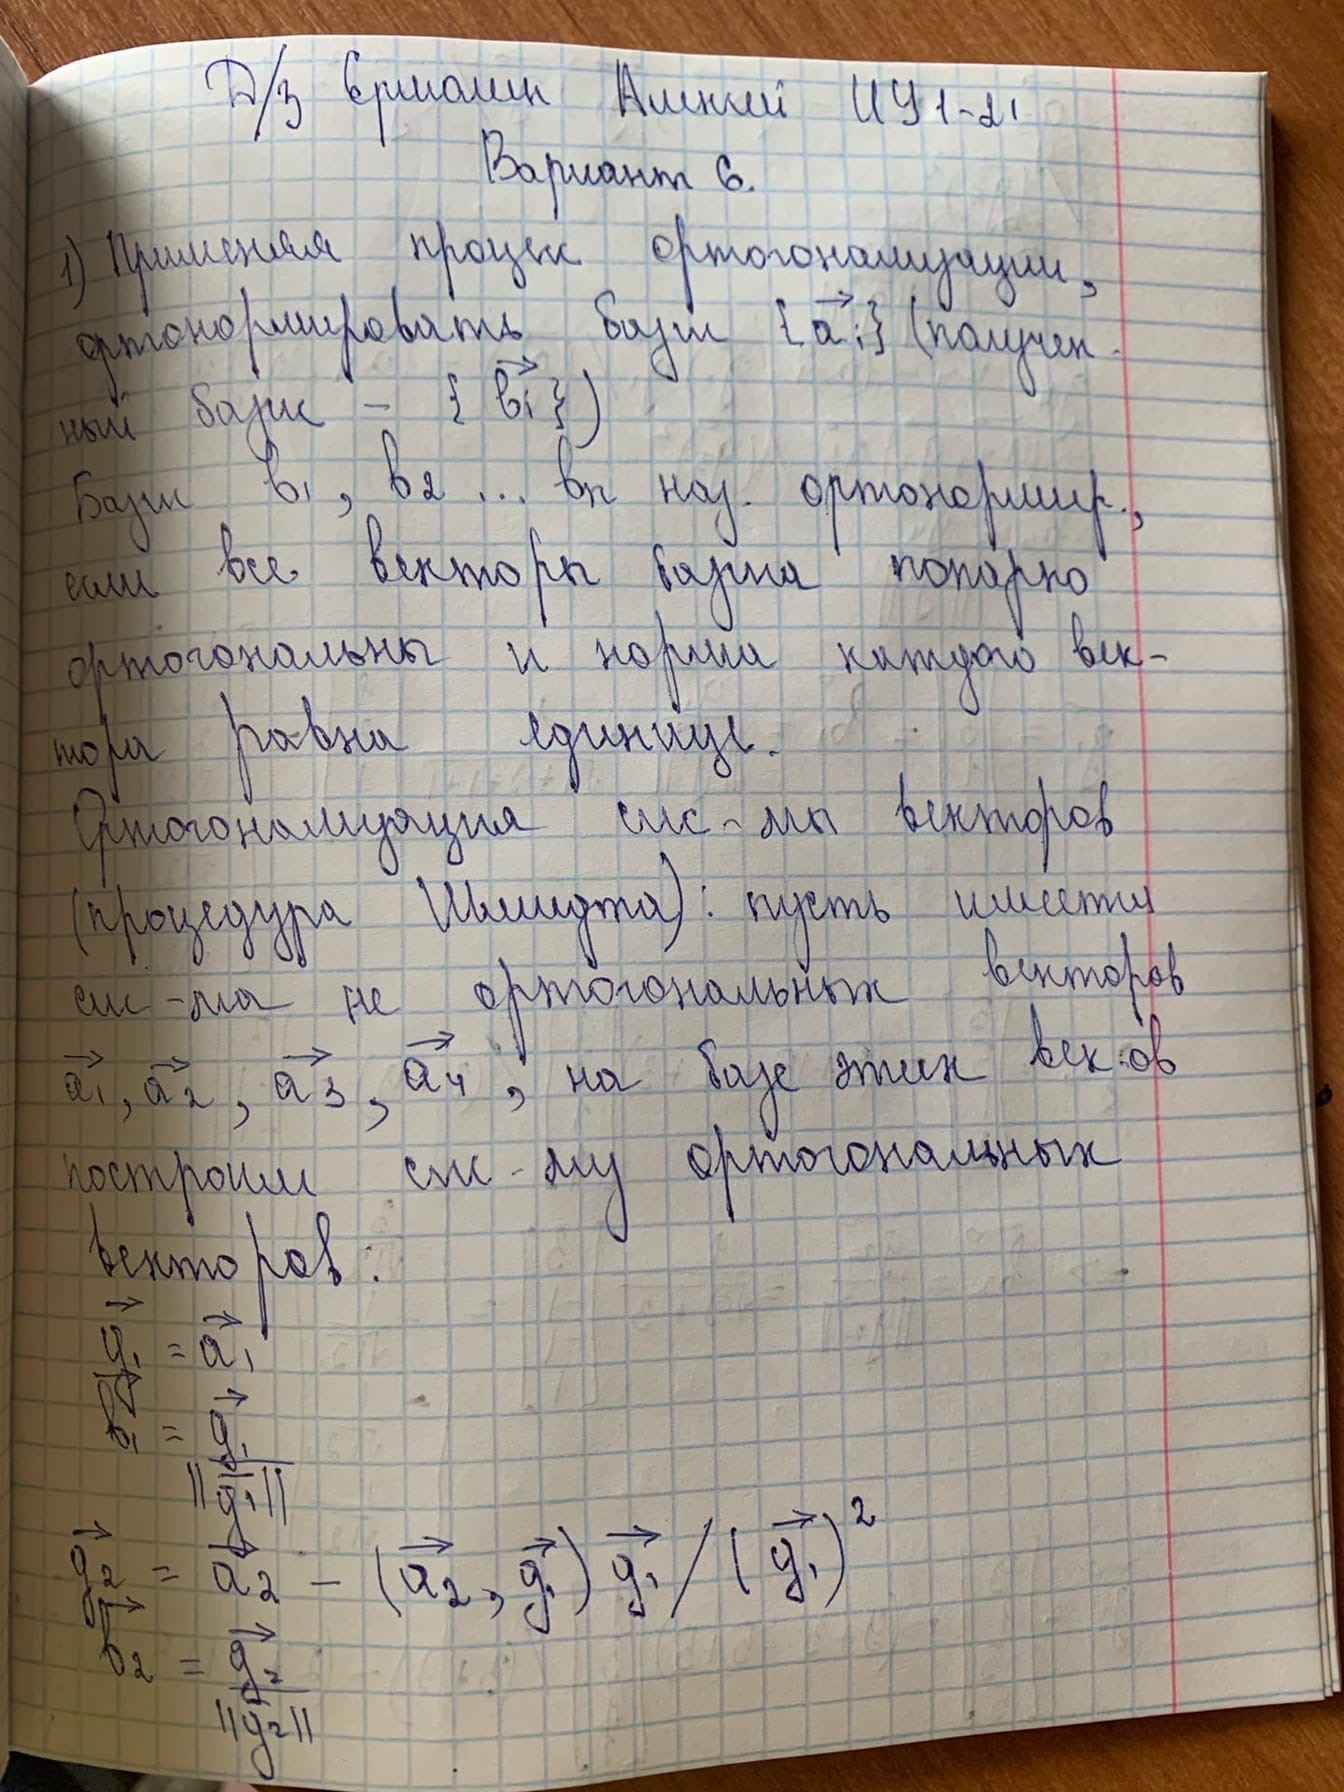 Д/З Ермолин Алексей ИУ1-21
Вариант 6.
1) Применяя процесс ортогонализации,
ортонормировать базис {a⃗i} (получен-
ный базис - {b⃗i})
Базис b1, b2 ... bn наз. ортонормир.,
если все векторы базиса попарно
ортогональны и норма каждого век-
тора равна единице.
Ортогонализация сис-мы векторов
(процедура Шмидта): пусть имеется
сис-ма не ортогональных векторов
a⃗1, a⃗2, a⃗3, a⃗4, на базе этих век-ов
построим сис-му ортогональных
векторов:
g⃗1 = a⃗1
b⃗1 = g⃗1 / ||g⃗1||
g⃗2 = a⃗2 - (a⃗2, g⃗1) g⃗1 / (g⃗1)²
b⃗2 = g⃗2 / ||g⃗2||